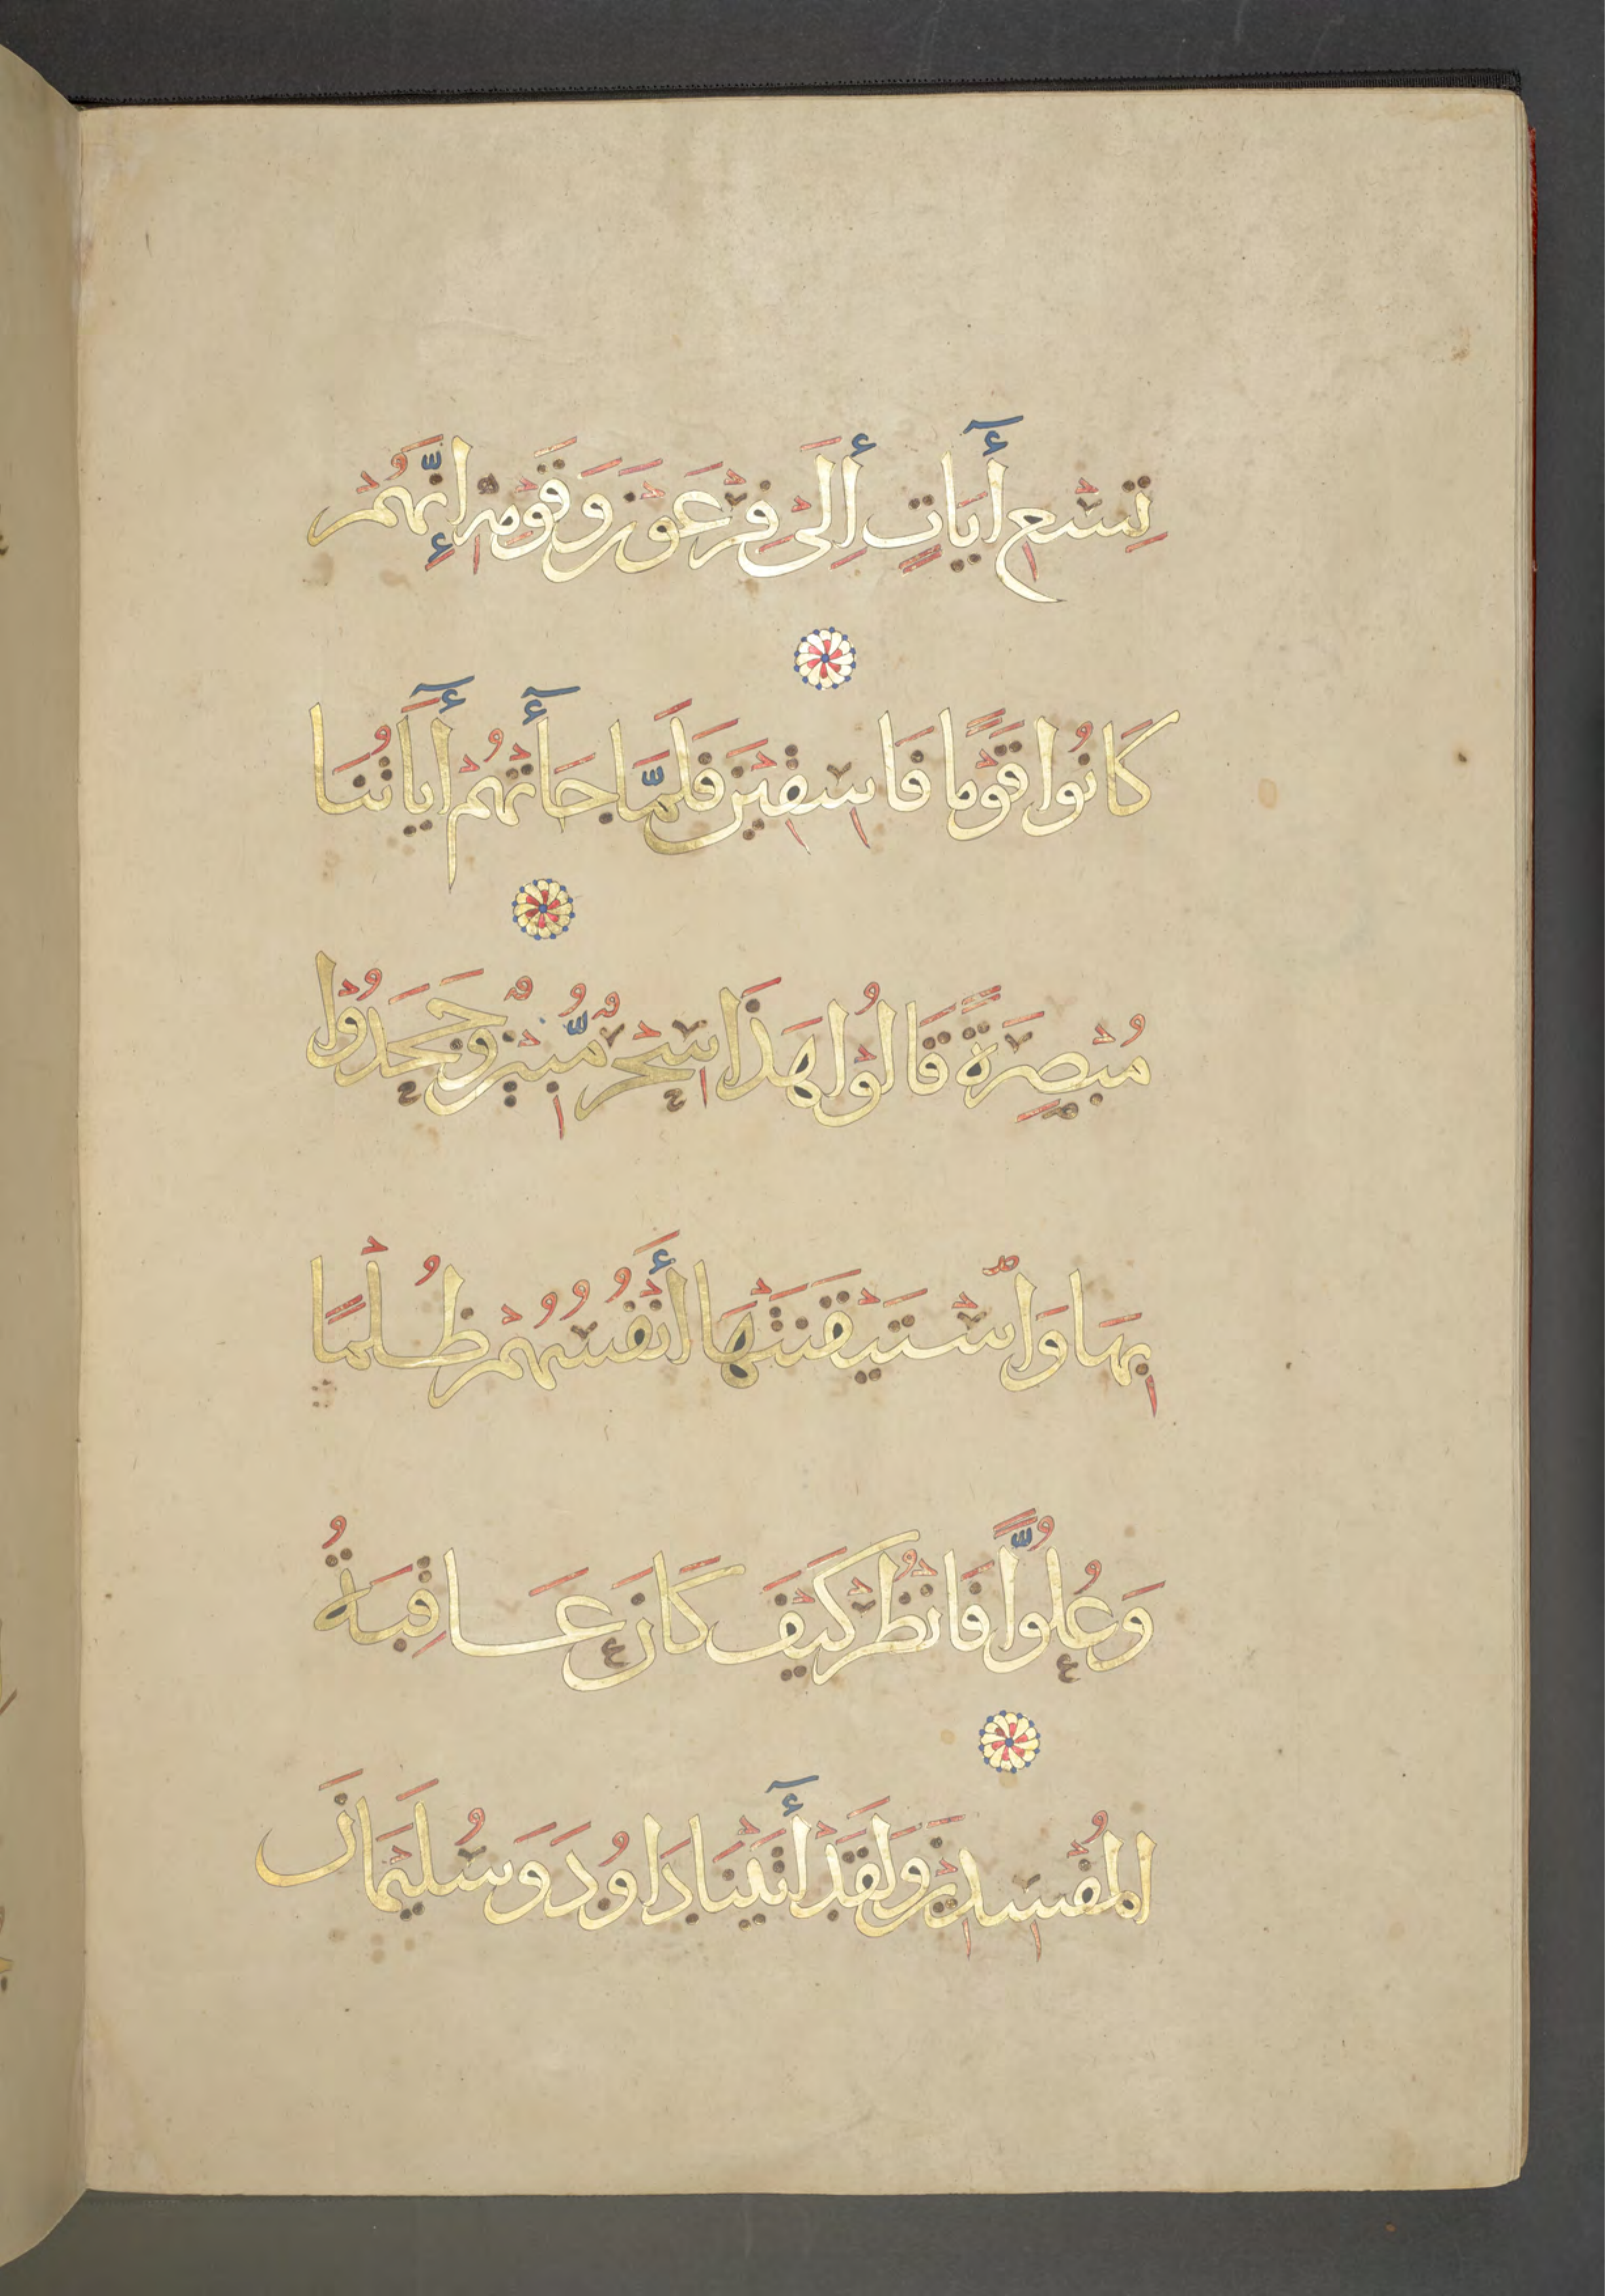 تِسْعِ أَيَاتٍ إِلَىٰ فِرْعَوْنَ وَقَوْمِهِ إِنَّهُمْ
كَانُوا قَوْمًا فَاسِقِيْنَ فَلَمَّا جَأَتْهُمْ أَيَاتُنَا
مُبْصِرَةً قَالُوْا هَذَا سِحْرٌ مُّبِيْنٌ وَجَحَدُوْا
بِهَا وَاسْتَيْقَنَتْهَا أَنْفُسُهُمْ ظُلْمًا
وَعُلُوًّا فَانْظُرْ كَيْفَ كَانَ عَاقِبَةُ
الْمُفْسِدِيْنَ وَلَقَدْ أَتَيْنَا دَاوُدَ وَسُلَيْمَانَ